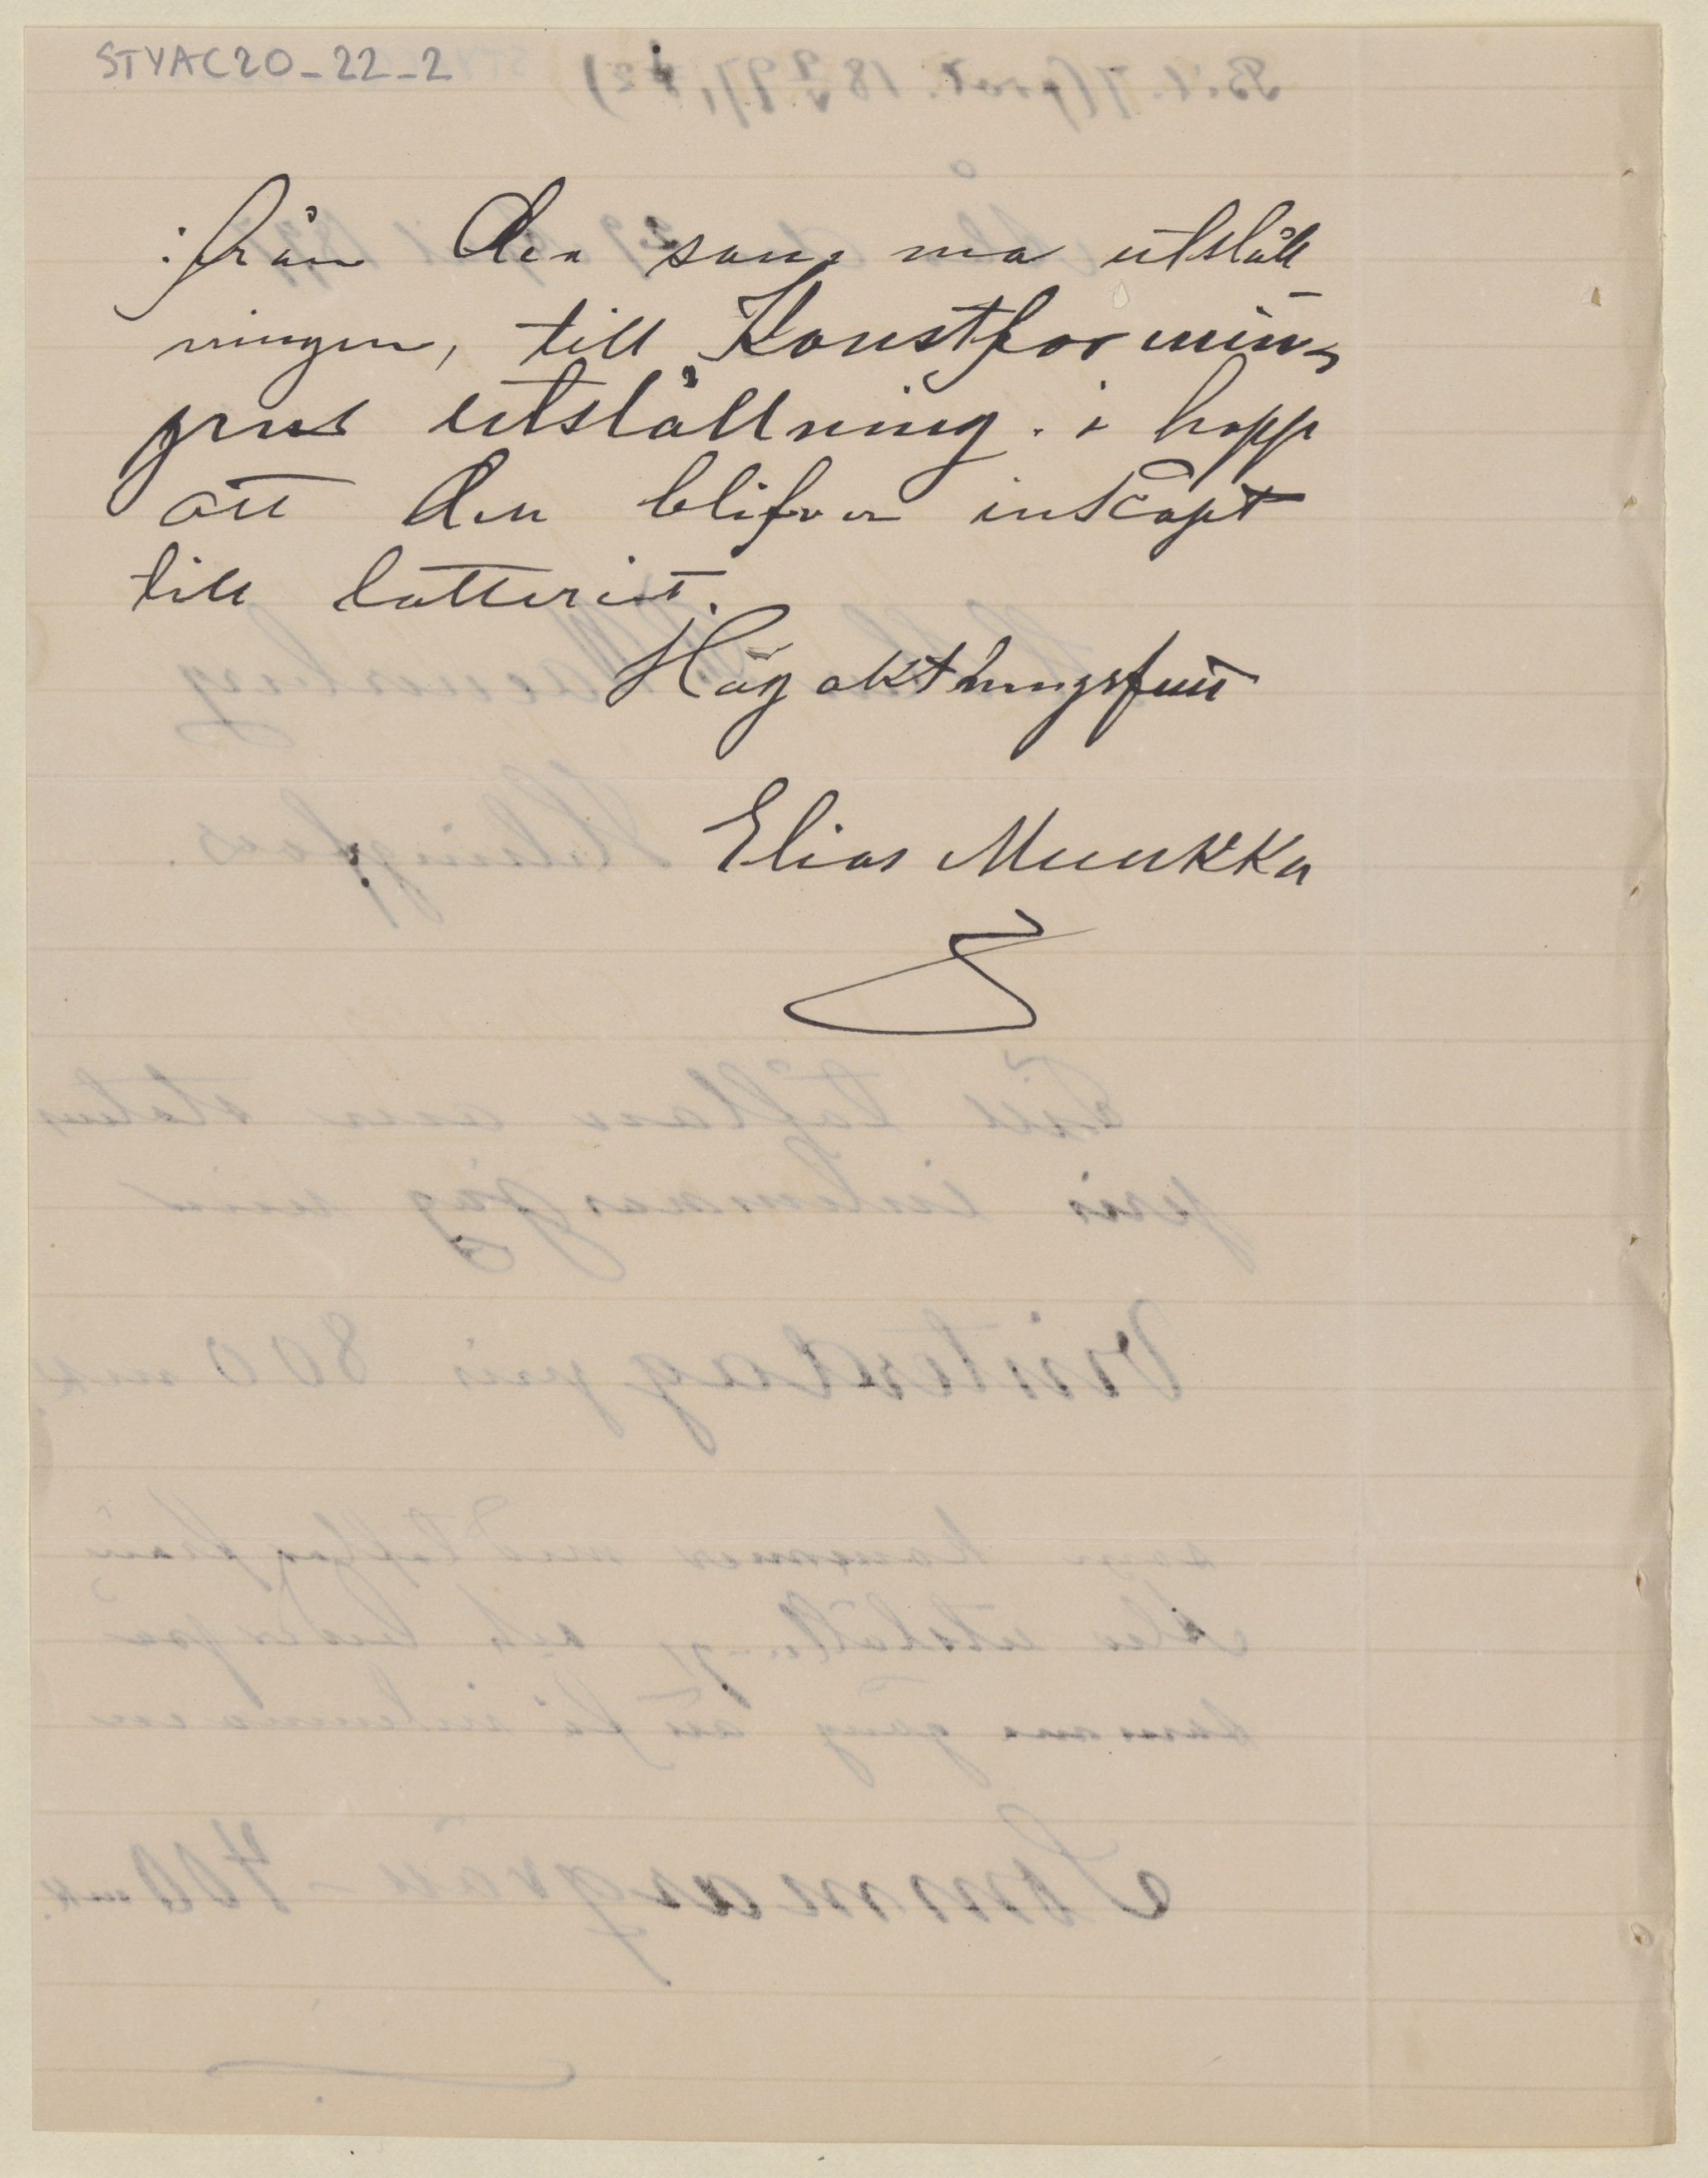 STYAC20_22_2
ifrån den samma utställ
ningen, till Konstförenin-
gens utställning. i hopp
att den blifver inköpt
till lotteriet.
Högaktningsfullt
Elias Muukka